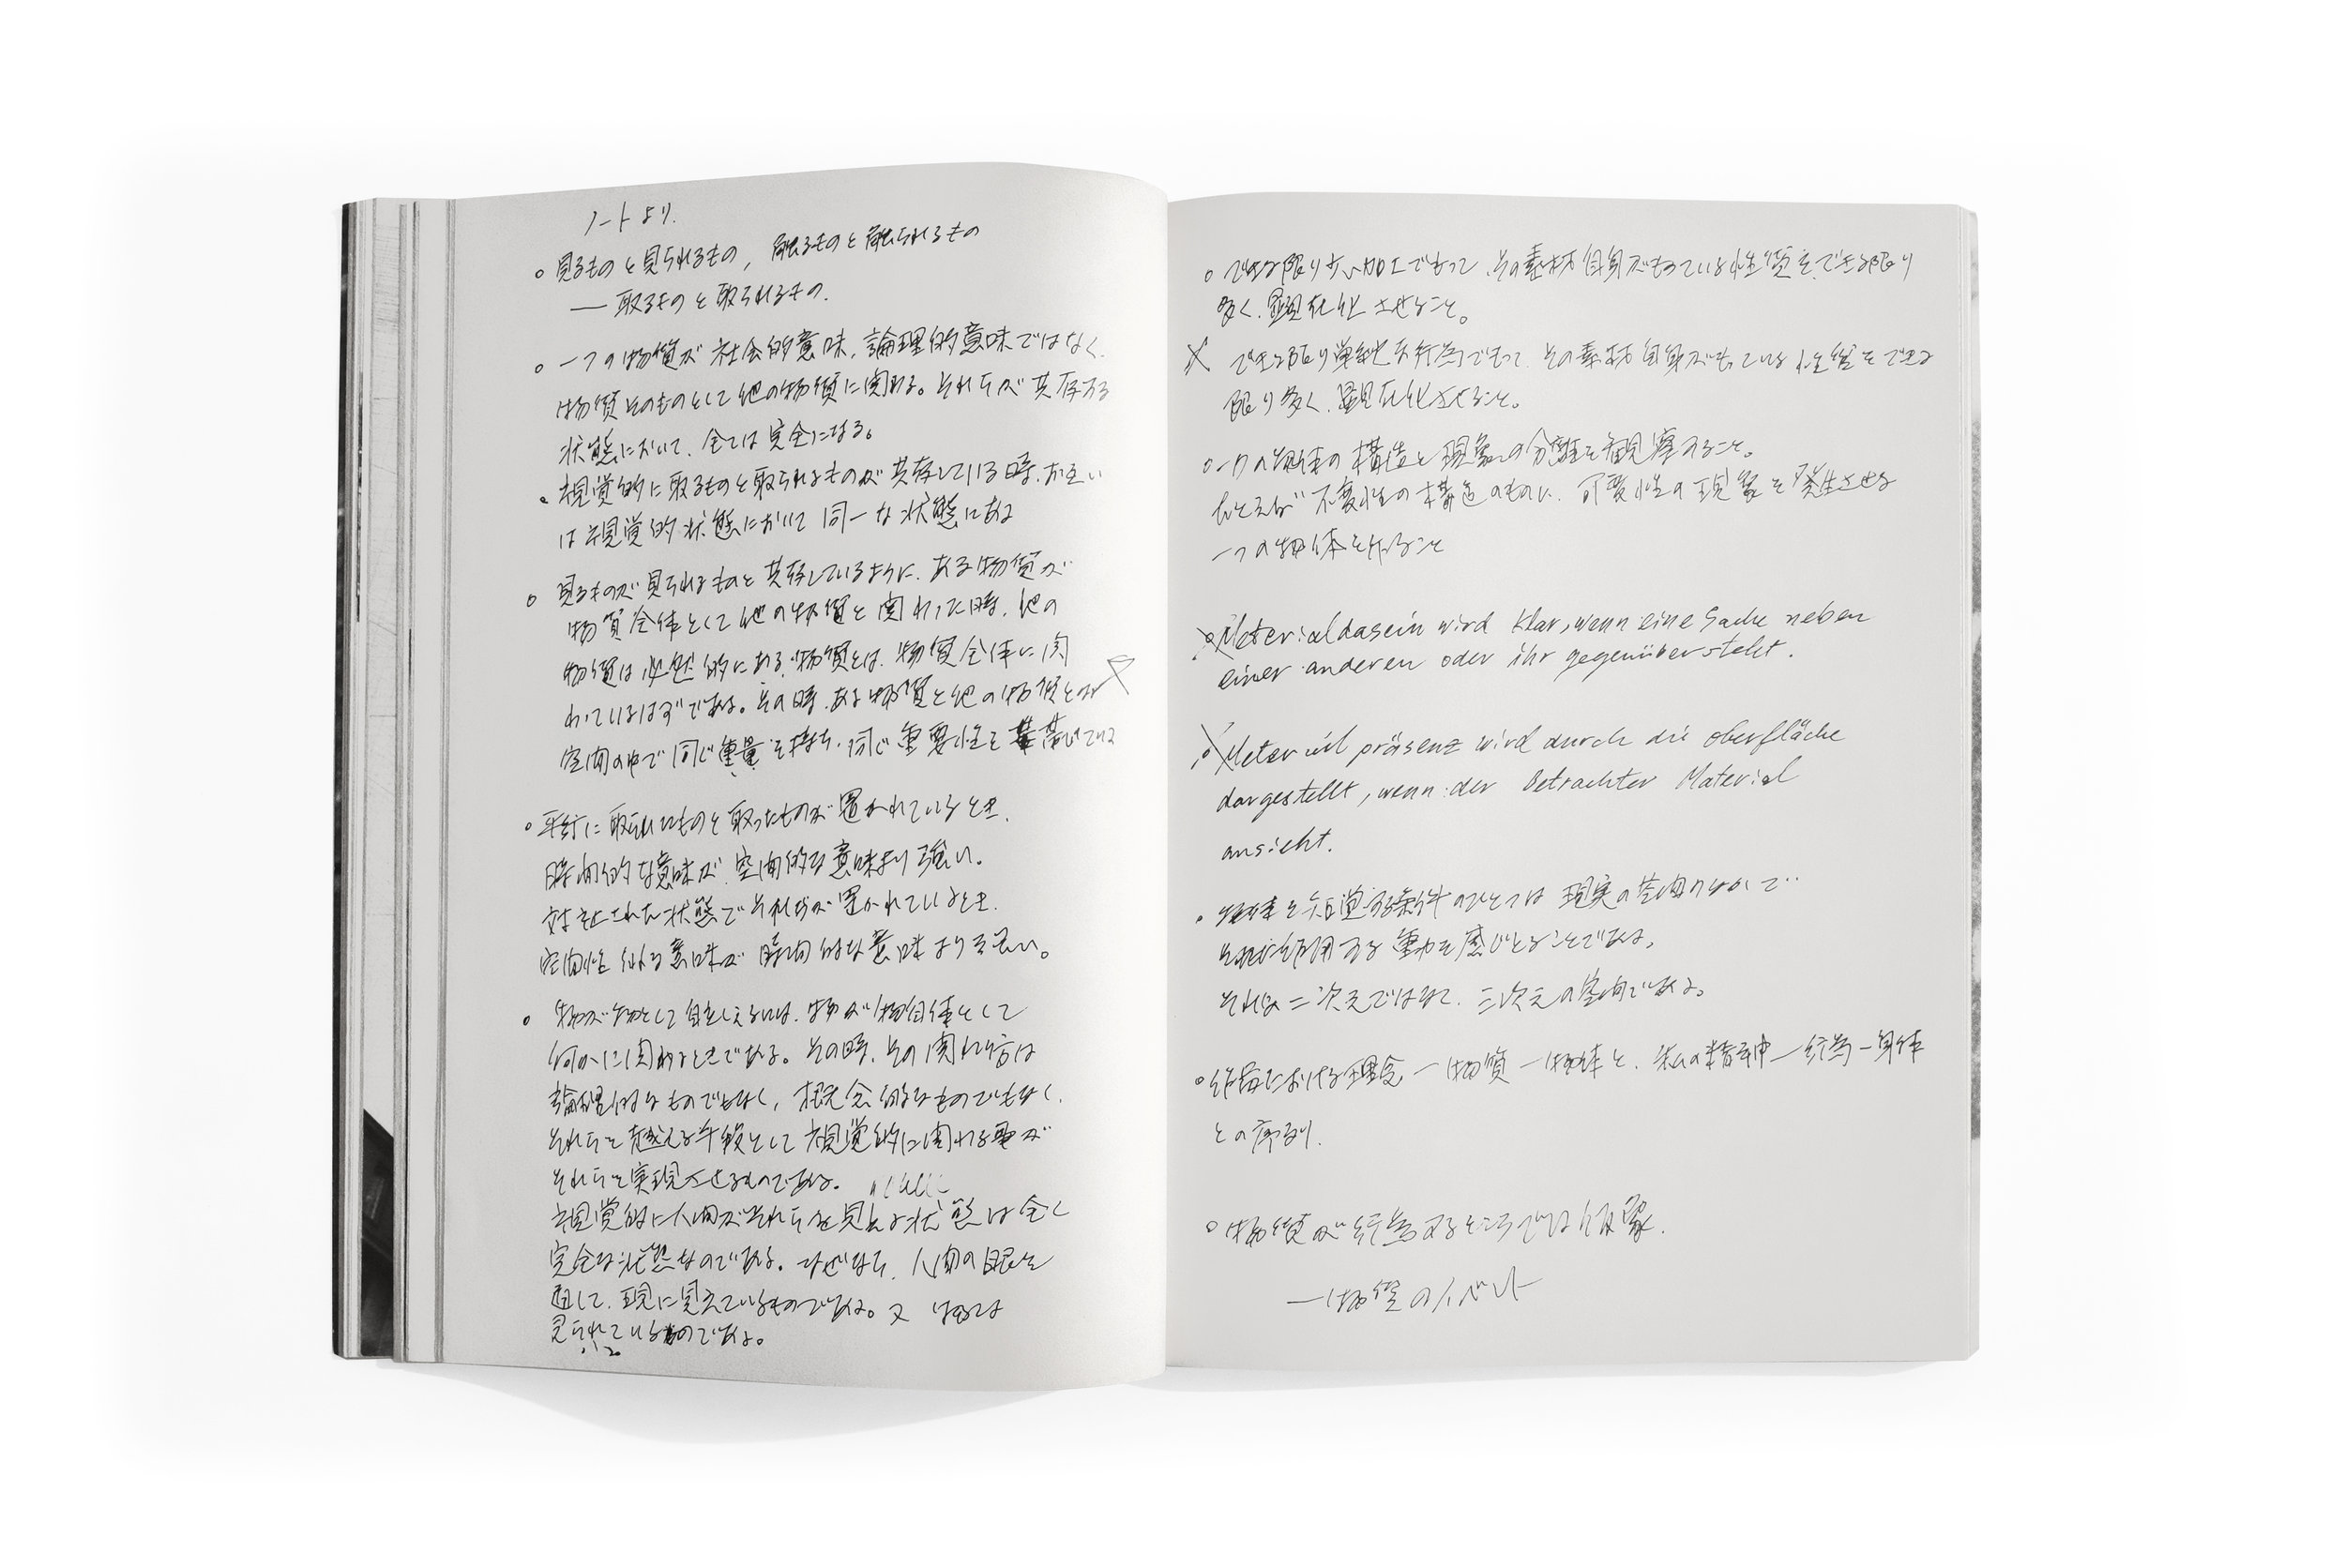 ノートより.
○ 見るものと見られるもの, 触るものと触られるもの
— 取るものと取られるもの.
○ 一つの物質が社会的意味, 論理的意味ではなく.
物質そのものとして他の物質に関わる。それらが共存する
状態において, 全ては完全になる。
○ 視覚的に取るものと取られるものが共存している時, お互い
は視覚的状態において同一な状態にある
○ 見るものが見られるものと共存しているように, ある物質が
物質全体として他の物質と関わった時, 他の
物質は必然的にある物質とは, 物質全体に関
わっているはずである。その時, ある物質と他の物質とが
空間の中で同じ重量を持ち, 同じ重要性を帯びている
○ 平行に取られたものと取ったものが置かれているとき,
時間的な意味が, 空間的な意味より強い。
対比された状態でそれらが置かれているとき,
空間性 意味が 時間的な意味より強い。
○ 物が物として自立しえるのは, 物が物自体として
何かに関わるときである。その時, その関わり方は
論理的なものでもなく, 概念的なものでもなく,
それらを越える手段として視覚的に関わる事が
それらを実現させるものである。
視覚的に人間がそれらを見える状態は全く
完全な状態なのである。なぜなら, 人間の眼を
通して, 現に見えているものである。又 物は
見られているものである。
○ できる限り少い加工でもって, その素材自身がもっている性質を, できる限り
多く, 顕在化させること。
X できる限り単純な行為でもって, その素材自身がもっている性質をできる
限り多く, 顕在化させること。
○ 一つの物体の構造と現象の分離を観察すること。
たとえば 不変性の構造のものに, 可変性の現象を発生させる
一つの物体を作ること
○ Materialdasein wird klar, wenn eine Sache neben
einer anderen oder ihr gegenübersteht.
○ Material präsenz wird durch die oberfläche
dargestellt, wenn der Betrachter Material
ansieht.
○ 物体を知覚する条件のひとつは 現実の空間のなかで‥
それに作用する重力を感じとることである。
それは二次元ではなく, 三次元の空間である。
○ 作品における理念—物質—物体と, 私の精神—行為—身体
との
○ 物質が行為するところでは 現象.
— 物質のイベント